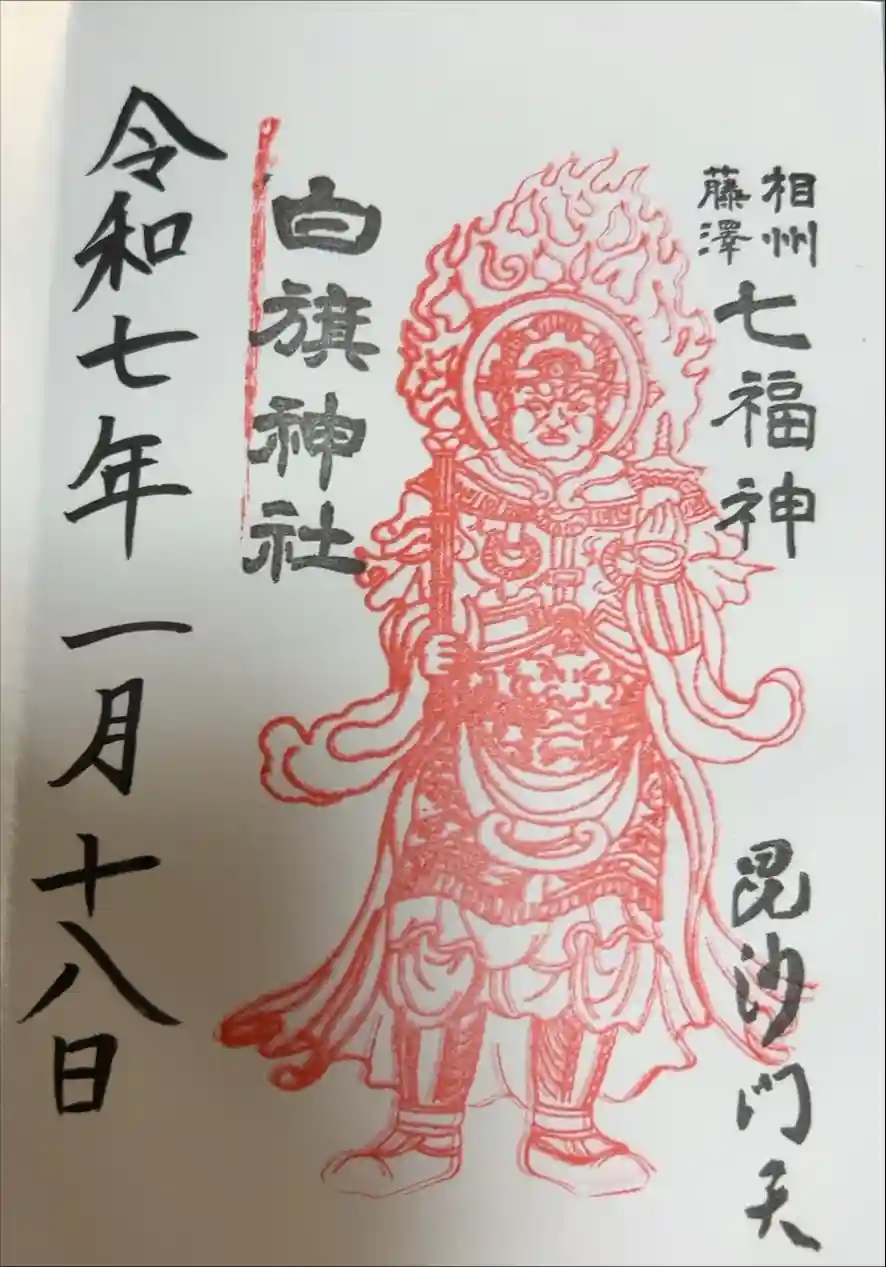 相州
藤澤
七福神
毘沙門天
白旗神社
令和七年一月十八日